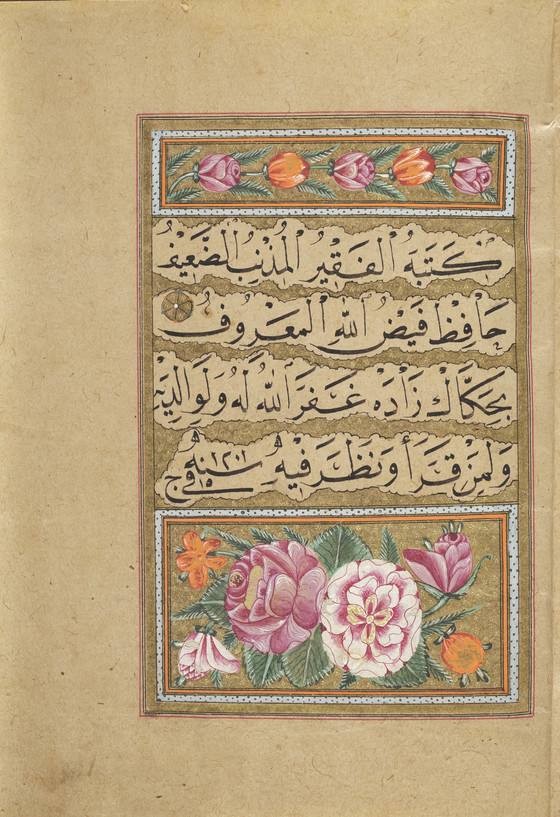 كَتَبَهُ الْفَقِيرُ الْمُذْنِبُ الضَّعِيفُ
حَافِظْ فَيْضُ اللّٰهِ الْمَعْرُوفُ
بِحَكَّاكْ زَادَه غَفَرَ اللّٰهُ لَهُ وَلِوَالِدَيْهِ
وَلِمَنْ قَرَأَ وَنَظَرَ فِيهِ سنه ١٢٠١